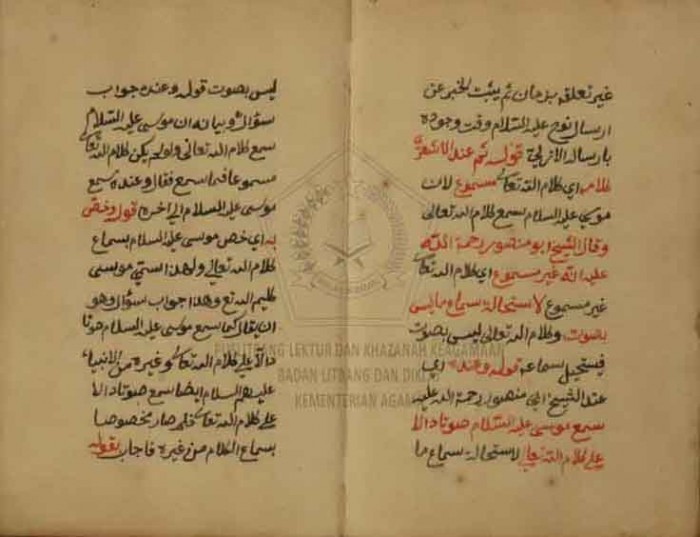 غير تعلقه بزمان ثم يثبت الخبر عن
ارسال نوح عليه السلام وقت وجوده
بارساله الازلي قوله ثم عند الاشعري
كلامه اي كلام الله تعالى مسموع لان
موسى عليه السلام سمع كلام الله تعالى
وقال الشيخ ابو منصور رحمة الله
عليه انه غير مسموع اي كلام الله تعالى
غير مسموع لاستحالة سماع ما ليس
بصوت وكلام الله تعالى ليس بصوت
فيستحيل سماعه قوله وعنده اي
عند الشيخ ابي منصور رحمة الله عليه
سمع موسى عليه السلام صوتا دالا
على كلام الله تعالى لاستحالة سماع ما
ليس بصوت قوله وعنده جواب
سؤال وبيانه ان موسى عليه السلام
سمع كلام الله تعالى ولو لم يكن كلام الله تعالى
مسموعا فما سمع فقال وعنده سمع
موسى عليه السلام الى اخره قوله وخص
به اي خص موسى عليه السلام بسماع
كلام الله تعالى ولهذا سمي موسى
كليم الله تع وهذا جواب سؤال وهو
ان يقال كما سمع موسى عليه السلام صوتا
دالا على كلام الله تعالى وغيره من الانبياء
عليهم السلام ايضا سمع صوتا دالا
على كلام الله تعالى فلم صار مخصوصا
بسماع الكلام من غيره فاجاب بقوله
PUSLITBANG LEKTUR DAN KHAZANAH KEAGAMAAN
BADAN LITBANG DAN DIKLAT
KEMENTERIAN AGAMA